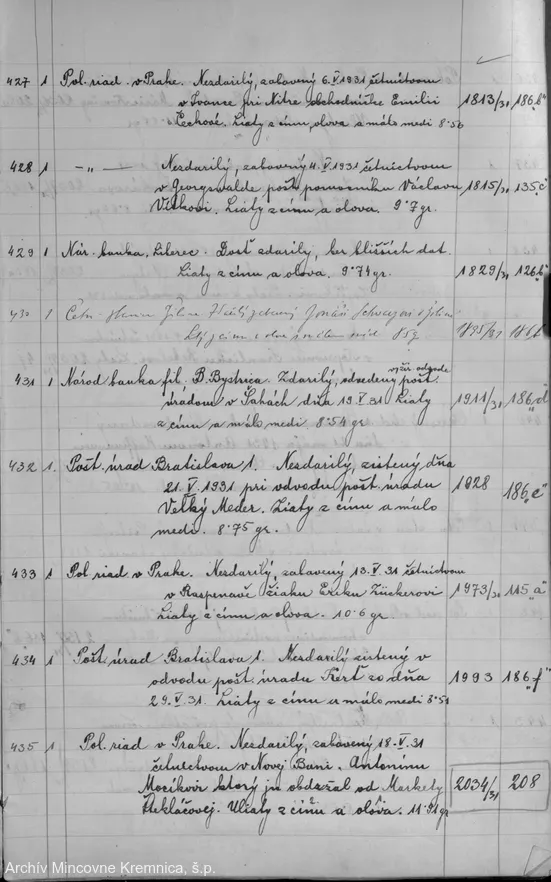 427 1 Pol. riad. v Prahe. Nezdarilý, zabavený 6.V.1931 četníctvom
v Ivanke pri Nitre obchodníčke Emilii 1813/31 186 „b“
Čechové. Liaty z cínu, olova a málo medi 8·56
428 1 —„— Nezdarilý, zabavený 4.V.1931 četníctvom
v Georgswalde pošt. pomocníku Václavu 1815/31 135 „c“
Vítkovi. Liaty z cínu a olova. 9·7 gr.
429 1 Nár. banka, Liberec. Dosť zdarilý, bez bližších dat.
Liaty z cínu a olova. 9·74 gr. 1829/31 126 „b“
430 1 Četn. Žilina zabavený Jonáš
431 1 Národ. banka fil. B. Bystrica. Zdarilý, odvedený pošt.
úradom v Šahách dňa 19.V.31 Liaty 1911/31 186 „d“
z cínu a málo medi 8·54 gr.
432 1. Pošt. úrad Bratislava 1. Nezdarilý, zistený dňa
21.V.1931 pri odvodu pošt. úradu 1928 186 „e“
Veľký Meder. Liaty z cínu a málo
medi. 8·75 gr.
433 1 Pol. riad v Prahe. Nezdarilý, zabavený 13.V.31 četníctvom
v Raspenavi žiaku Eriku Zückerovi 1973/31 115 „a“
Liaty z cínu a olova. 10·6 gr
434 1 Pošt. úrad Bratislava 1. Nezdarilý zistený v
odvodu pošt. úradu zo dňa 1993 186 „f“
29.V.31. Liaty z cínu a málo medi 8·51
435 1 Pol. riad v Prahe. Nezdarilý, zabavený 18.V.31
četníctvom v Novej Bani. Antonínu
Mocíkovi ktorý ju obdržal od Markety 2034/31 208
Uliaty z cínu a olova. 11·91 gr
Archív Mincovne Kremnica, š.p.